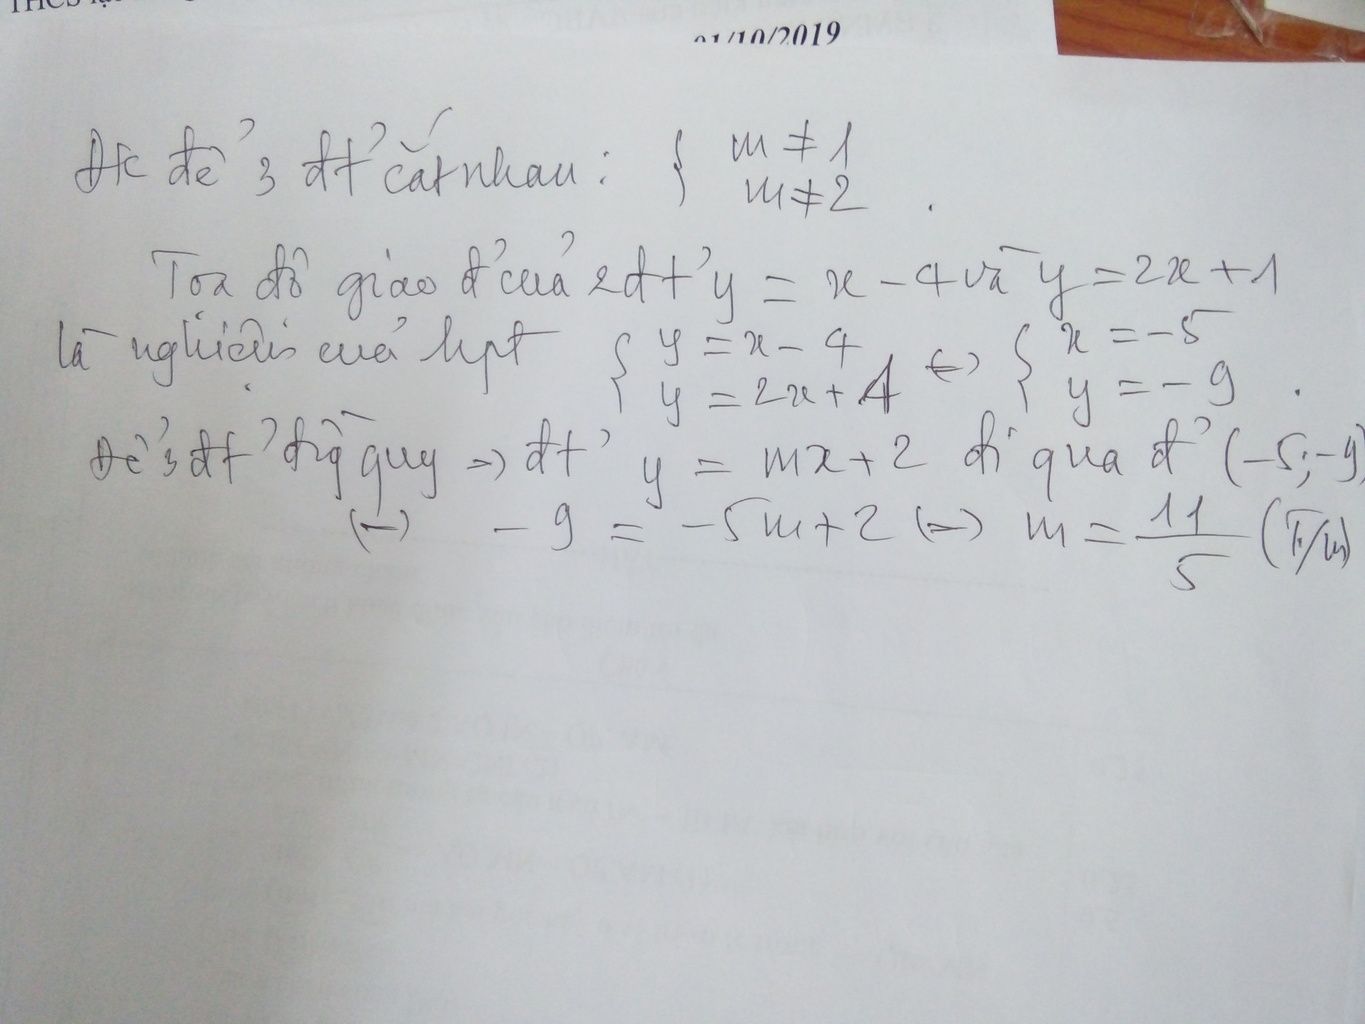 THCS
01/10/2019
ĐK để 3 đt' cắt nhau : { m ≠ 1
m ≠ 2 .
Tọa độ giao đ' của 2 đt' y = x - 4 và y = 2x + 1
là nghiệm của hpt { y = x - 4 <=> { x = -5
y = 2x + 1 y = -9 .
Để 3 đt' đồng quy => đt' y = mx + 2 đi qua đ' (-5; -9)
<=> -9 = -5m + 2 <=> m = 11/5 (T/m)